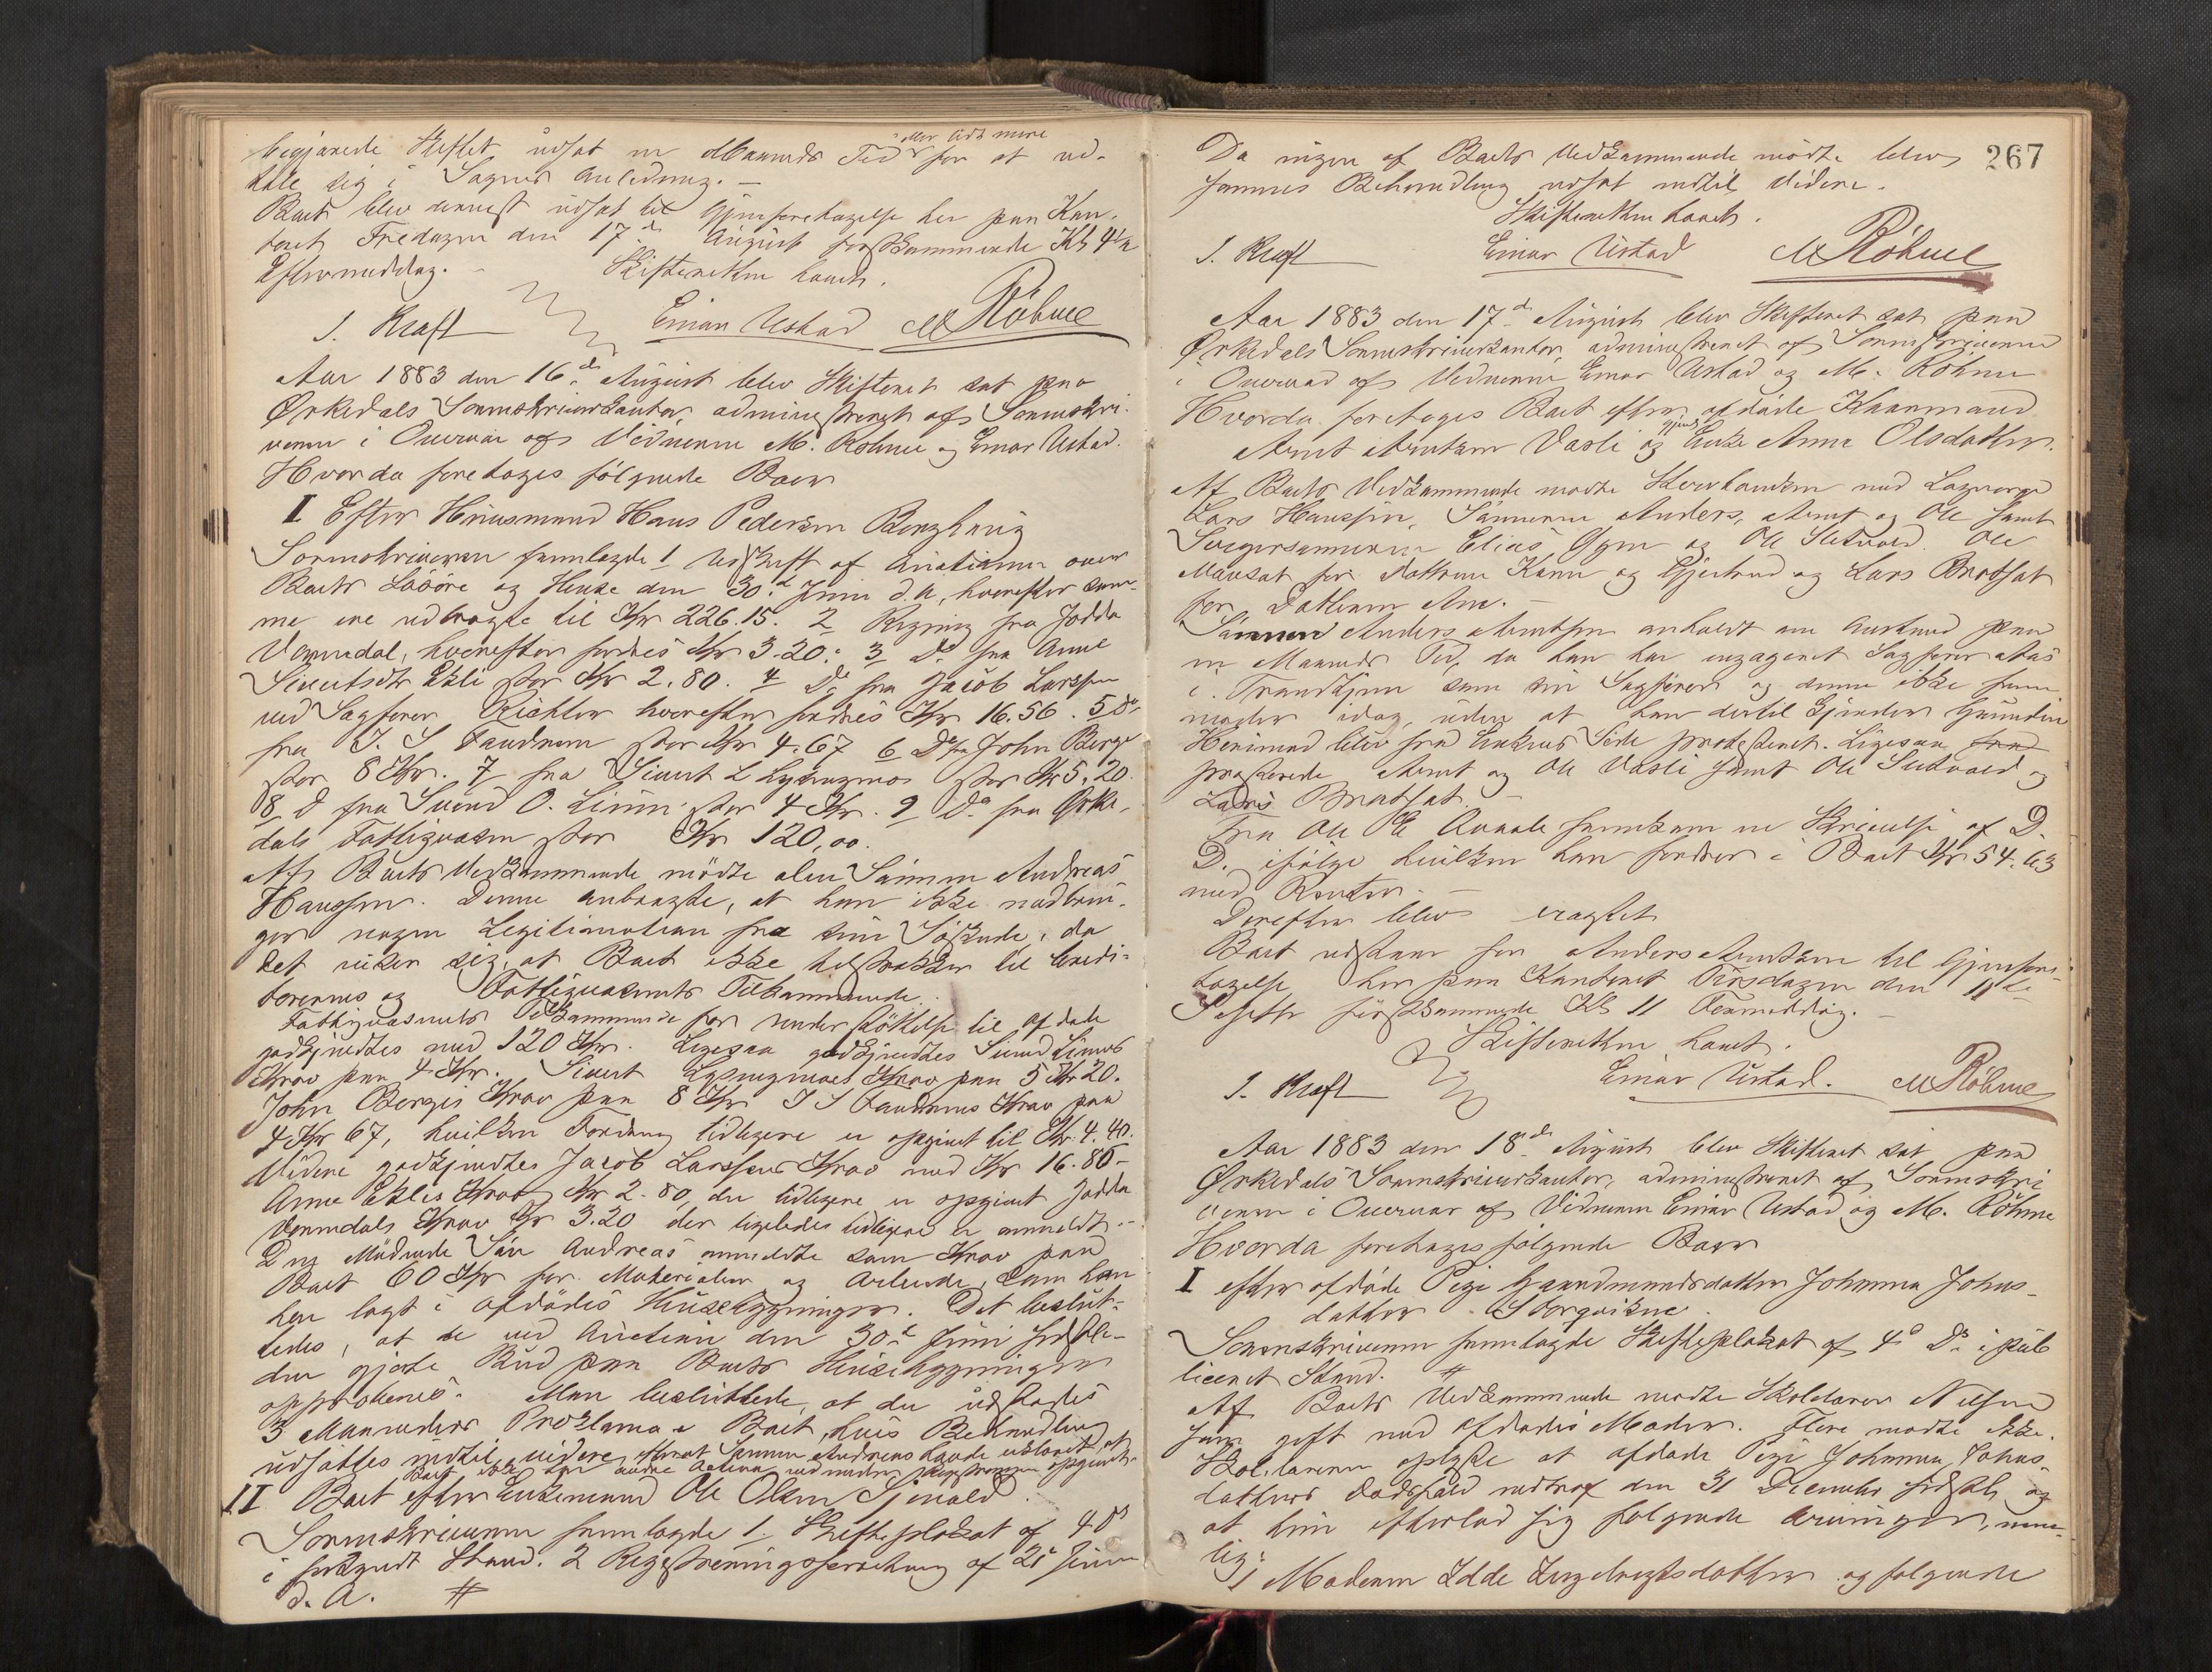 begjærede Skiftet udsat en Maaneds Tid eller lidt mere for at ud-
tale sig i Sagens Anledning. –
Boet blev dernæst udsat til Gjenforetagelse her paa Kon-
toret Fredagen den 17de August førstkommende Kl 4½
Eftermiddag. – Skifteretten hævet.
J. Kraft Einar Ustad M Röhme
Aar 1883 den 16de August blev Skifteret sat paa
Ørkedals Sorenskriverkontor administreret af Sorenskri-
veren i Overvær af Vidnerne M. Röhme og Einar Ustad.
Hvorda foretoges følgende Boer
I Efter Huusmand Hans Pedersen Berghaug
Sorenskriveren fremlagde 1 Udskrift af Auktionen over
Boets Løsøre og Huse den 30d Juni d.A., hvorefter sam-
me ere udbragte til Kr 226.15. 2 Regning fra Jodda
Vormdal, hvorefter fordres Kr 3.20. 3 Do fra Anne
Sivertsdtr Ekli stor Kr 2.80. 4 Do fra Jacob Larssen
ved Sagfører Richter hvorefter fordres Kr 16.56. 5 Do
fra J. S. Fandrem stor Kr 4.67 6 Do fra John Berge
stor 8 Kr. 7 fra Sivert L Lysningmo stor Kr 5.20.
8 D fra Svend O. Lium stor 4 Kr. 9 Do fra Ørke-
dals Fattigvæsen stor Kr 120,00.
Af Boets Vedkommende mødte alene Sønnen Andreas
Hanssen. Denne anbragte, at han ikke medbrin-
ger nogen Legitimation fra sine Søskende, da
det viser sig, at Boet ikke tilstrækker til Kredi-
torernes og Fattigvæsenets Tilkommende.
Fattigvæsenets Tilkommende for Understøttelse til afdøde
godkjendtes med 120 Kr. Ligesaa godkjendtes Svend Liums
Krav paa 4 Kr. Sivert Lysningmoes Krav paa 5 Kr 20.
John Berges Krav paa 8 Kr J S Fandrems Krav paa
4 Kr 67, hvilken Fordring tidligere er opgivet til Kr. 4.40.
Videre godkjendtes Jacob Larssens Krav med Kr 16.80 –
Anne Eklis Krav Kr 2.80, der tidligere er opgivet Jodda
Vormdals Krav Kr 3.20 der ligeledes tidligere er anmeldt. –
Den Mødende Søn Andreas anmeldte som Krav paa
Boet 60 Kr for Materialer og Arbeide, som han
har lagt i afdødes Husebygninger. Det beslut-
tedes, at de ved Auktion den 30te Juni sidstle-
den gjorte Bud paa Boets Husebygninger
approberes. Man besluttede, at der udstedes
3 Maaneders Proklama i Boet, hvis Behandling
udsattes indtil videre, efterat Sønnen Andreas havde erklæret, at
Boet ikke har andre Activa end under Registreringen opgivet.
II Boet efter Enkemand Ole Olsen Sjevold.
Sorenskriveren fremlagde 1. Skifteplakat af 4 Ds
i forkyndt Stand. 2 Registreringsforretning af 21de Juni
d. A. #
267
Da ingen af Boets Vedkommende mødte blev
sammes Behandling udsat indtil Videre.
Skifteretten hævet.
J. Kraft Einar Ustad M Röhme
Aar 1883 den 17de August blev Skifteret sat paa
Ørkedals Sorenskriverkontor, administreret af Sorenskriveren
i Overvær af Vidnerne Einar Ustad og M. Röhme
Hvorda foretoges Boet efter afdøde Kaarmand
Arnt Arntsen Vasli og Enke Anne Olsdatter.
Af Boets Vedkommende mødte Stervboenken med Lagværge
Lars Hanssen, Sønnerne Anders, Arnt og Ole samt
Svigersønnerne Elias Gjen og Ole Sletvold. Ole
for Døttrene Karen og Gjertrud og Lars Bratset
for Datteren Ane. –
Sønnen Anders Arntsen anholdt om Anstand paa
en Maaneds Tid, da han har engageret Sagfører Aas
i Trondhjem som sin Sagfører og denne ikke frem-
møder idag, uden at han dertil kjender Grunden
Herimod blev fra Enkens Side protesteret. Ligesaa
protesterede Arnt og Ole Vasli samt Ole Sletvold og
Lars Bratset. –
Fra Ole E Aunale fremkom en Skrivelse af D.
D. ifølge hvilken han fordrer i Boet Kr 54.63
med Renter. –
Derefter blev eragtet
Boet udstaar for Anders Arntsen til Gjenfore-
tagelse her paa Kontoret Tirsdagen den 11te
Septbr førstkommende Kl 11 Formiddag. –
Skifteretten hævet.
J. Kraft Einar Ustad. M Röhme
Aar 1883 den 18de August blev Skifteret sat paa
Ørkedals Sorenskriverkontor, administreret af Sorenskri-
veren i Overvær af Vidnerne Einar Ustad og M. Röhme
Hvorda foretoges følgende Boer
I efter afdøde Pige Gaardmandsdatter Johanna Johns-
datter Storgvikne.
Sorenskriveren fremlagde Skifteplakat af 4d Ds i pub-
liceret Stand. #
Af Boets Vedkommende mødte Skolelærer Nilsen
som gift med Afdødes Moder. Flere mødte ikke.
Skolelæreren oplyste at afdøde Pige Johanna Johns-
datters Dødsfald indtraf den 31 December sidstl. og
at hun efterlod sig følgende Arvinger, nem-
lig: 1 Moderen Idde Ingebrigtsdatter og følgende